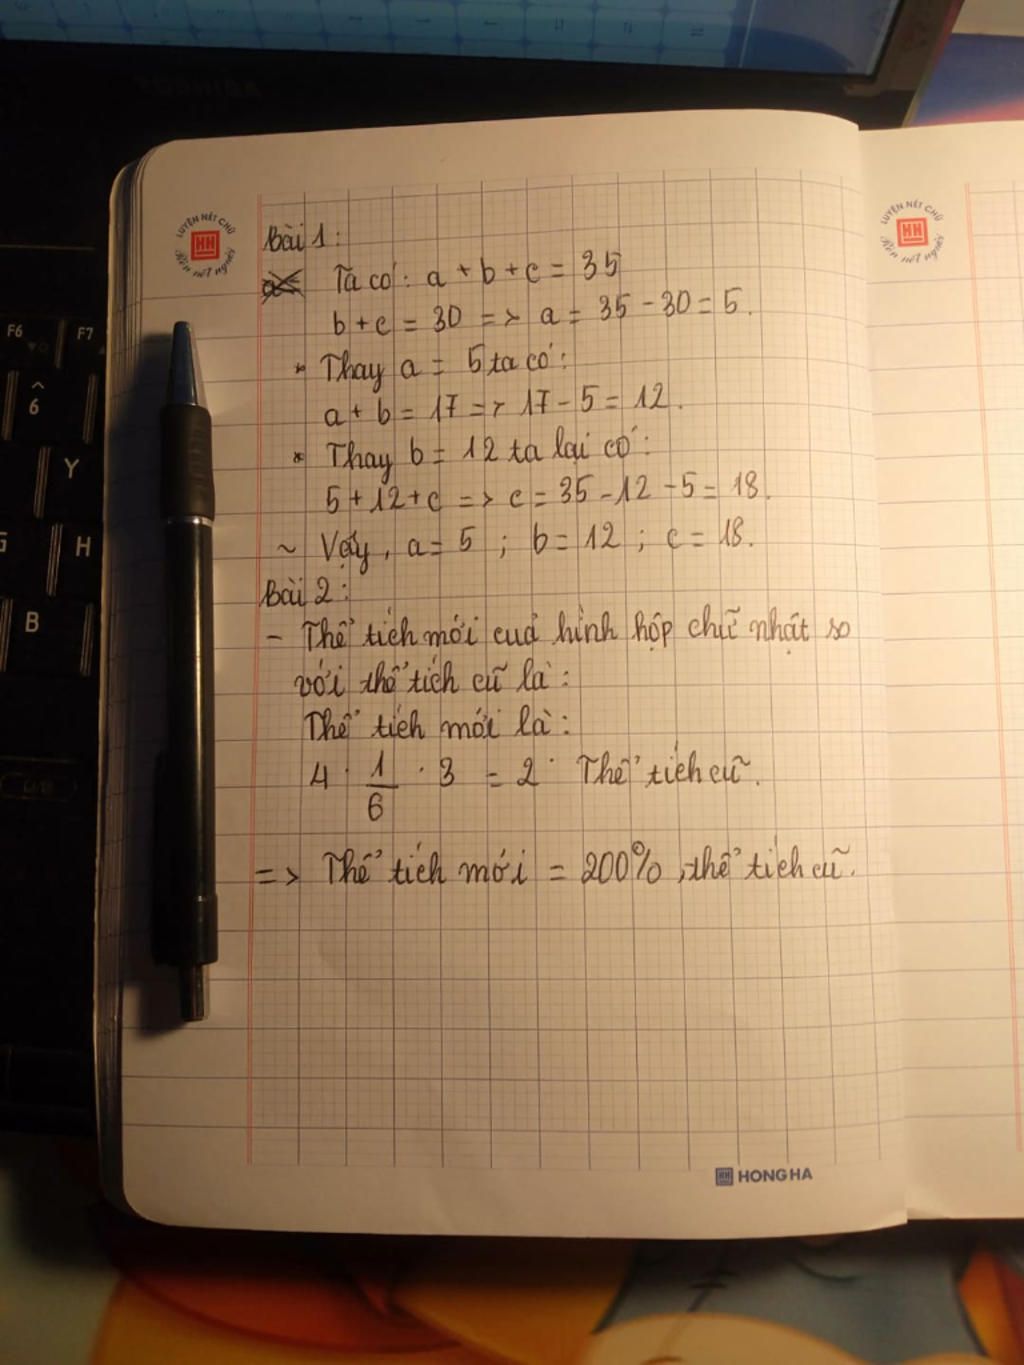 TOSHIBA
LUYỆN NÉT CHỮ
HH
Rèn nết người
LUYỆN NÉT CHỮ
HH
Rèn nết người
F6
F7
^
6
Y
G
H
B
Bài 1:
Ta có: a + b + c = 35
b + c = 30 => a = 35 - 30 = 5.
* Thay a = 5 ta có:
a + b = 17 => 17 - 5 = 12.
* Thay b = 12 ta lại có:
5 + 12 + c => c = 35 - 12 - 5 = 18.
~ Vậy, a = 5 ; b = 12 ; c = 18.
Bài 2:
- Thể tích mới của hình hộp chữ nhật so
với thể tích cũ là:
Thể tích mới là:
4 · 1/6 · 3 = 2 · Thể tích cũ.
=> Thể tích mới = 200% thể tích cũ.
HH HONG HA